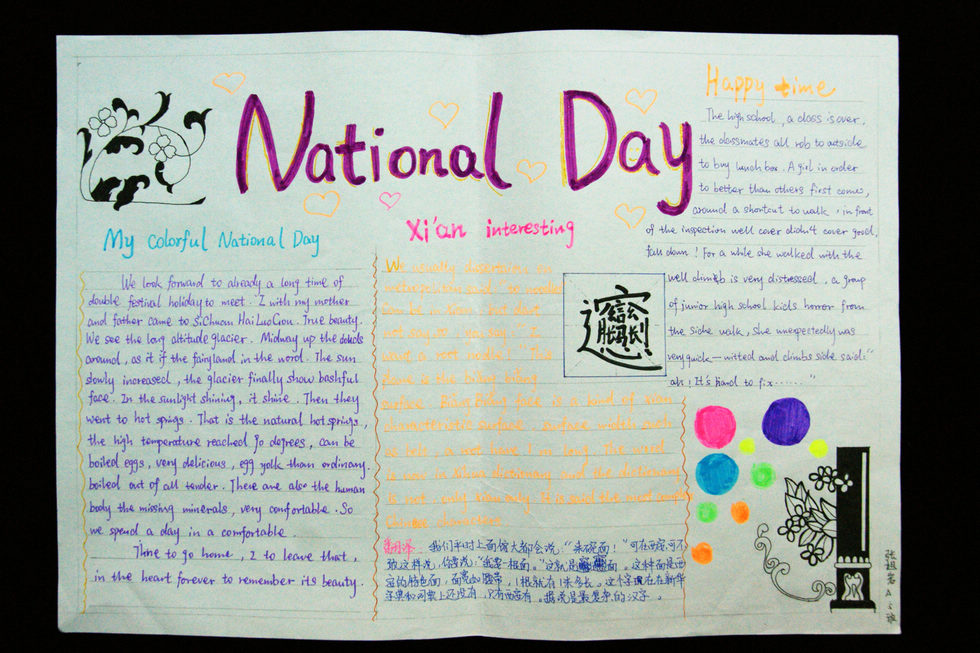 National Day
My colorful National Day
We look forward to already a long time of
double festival holiday to meet. I with my mother
and father came to SiChuan HaiLuoGou. True beauty.
We see the long altitude glacier. Midway up the
around, as it if the fairyland in the word. The sun
slowly increased, the glacier finally show bashful
face. In the sunlight shining, it shine. Then they
went to hot springs. That is the natural hot springs,
the high temperature reached 90 degrees, can be
boiled eggs, very delicious, egg yolk than ordinary.
boiled out of all tender. There are also the human
body the missing minerals, very confortable. So
we spend a day in a comfortable.
Time to go home, I to leave that,
in the heart forever to remember its beauty.
Xi'an interesting
We usually
said, "to noodles
in Xi'an, but don't
not say, "
want a root noodle!" This
is the biang biang
surface. Biang Biang face is a kind of xi'an
characteristic surface, surface width such
as belt, a root have 1 m long. The word
is now in Xinhua dictionary and the dictionary
is not, only Xi'an only. It is said the most
Chinese characters.
翻译: 我们平时上面馆大都会说,“来碗面!”可在西安可不
敢这样说,你要说:“我要一根面。”这就是 面。这种面是西
安的特色面,面宽如腰带,1根就有1米多长。这个字现在在新华
字典和词典上还没有,只有西安有。据说是最复杂的汉字。
Happy time
The high school, a class is over,
the classmates all rob to outside
to buy lunch box. A girl in order
to better than others first come,
around a shortcut to walk, in front
of the inspection well cover didn't cover good,
fall down! For a while she walked with the
well climb is very distressed, a group
of junior high school kids horror from
the side walk, she unexpectedly was
very quick-witted and climbs side said:"
ah! It's hard to fix......"
A 5 班